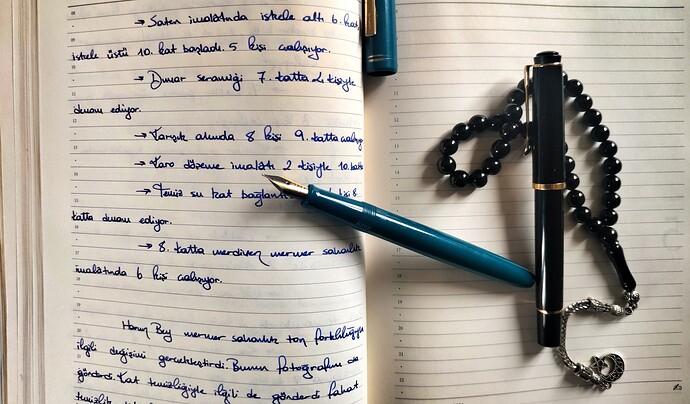 → Saten imalatında iskele altı 6. kat
iskele üstü 10. kat başladı. 5 kişi çalışıyor.
→ Duvar seramiği 7. katta 2 kişiyle
devam ediyor.
→ Karışık alanda 8 kişi 9. katta çalışıyor
→ Karo döşeme imalatı 2 kişiyle 10. katta
→ Temiz su kat bağlantı 8.
katta devam ediyor.
→ 8. katta merdiven mermer sahanlık
imalatında 6 kişi çalışıyor.
Harun Bey mermer sahanlık ton farklılığıyla
ilgili değişimi gerçekleştirdi. Bunun fotoğrafını da
gönderdi. Kat temizliğiyle ilgili de gönderdi fakat
temizlik